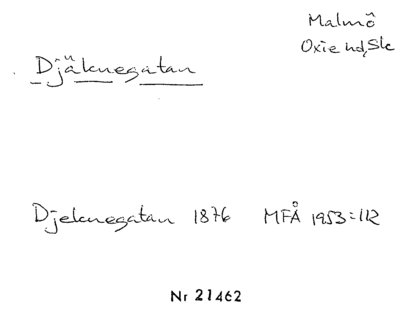 Malmö
Oxie hd, Sk
Djäknegatan
Djeknegatan 1876 MFÅ 1953:112
Nr 21462